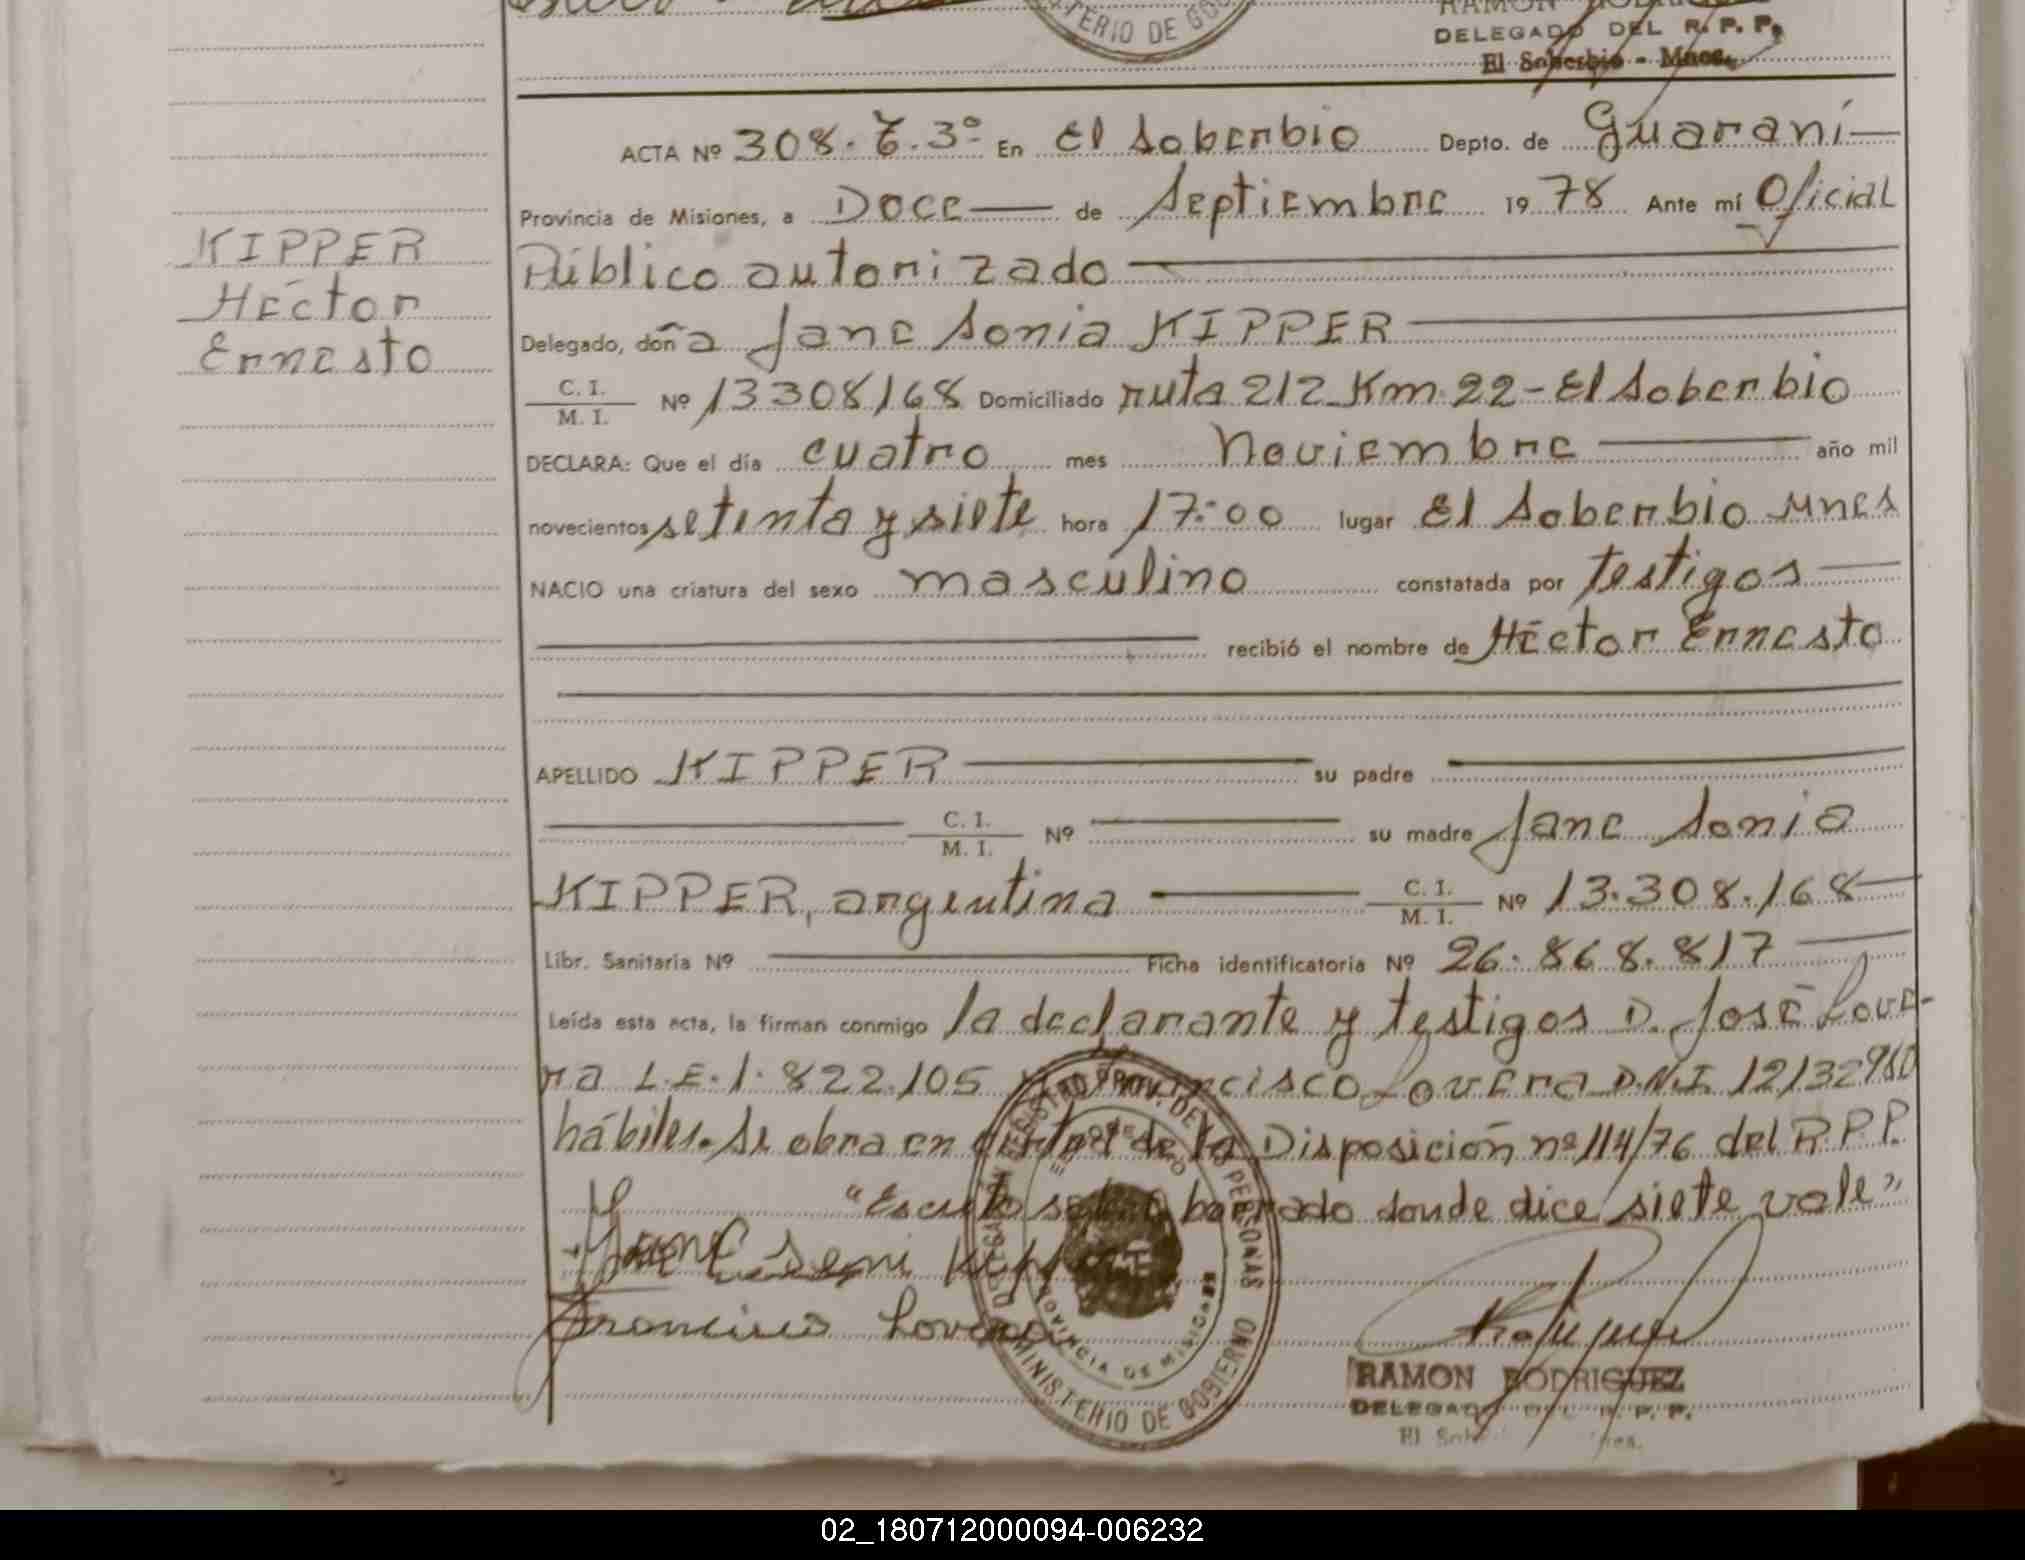 TERIO DE GO
RAMON RODRIGUEZ
DELEGADO DEL R. P. P.
El Soberbio - Mnes.
ACTA Nº 308. T. 3º En El Soberbio Depto. de Guaraní
Provincia de Misiones, a Doce de Septiembre 19 78 Ante mí Oficial
Público autorizado
Delegado, doña Jane Sonia KIPPER
C. I.
M. I. Nº 13308168 Domiciliado ruta 212 Km 22 - El Soberbio
DECLARA: Que el día cuatro mes Noviembre año mil
novecientos setenta y siete hora 17:00 lugar El Soberbio Mnes
NACIO una criatura del sexo masculino constatada por testigos
recibió el nombre de Héctor Ernesto
APELLIDO KIPPER su padre
C. I.
M. I. Nº su madre Jane Sonia
KIPPER, argentina C. I.
M. I. Nº 13.308.168
Libr. Sanitaria Nº Ficha identificatoria Nº 26.868.817
Leída esta acta, la firman conmigo la declarante y testigos D. José Love-
ra L.E. 1.822.105 y Francisco Lovera D.N.I. 12132960
hábiles. Se obra en virtud de la Disposición nº 114/76 del R.P.P.
"Escrito sobre borrado donde dice siete vale"
Jane Soni Kipper
Francisco Lovera
KIPPER
Héctor
Ernesto
DELEGACIÓN REGISTRO PROV. DE LAS PERSONAS
MINISTERIO DE GOBIERNO
PROVINCIA DE MISIONES
RAMON RODRIGUEZ
DELEGADO DEL R. P. P.
02_180712000094-006232